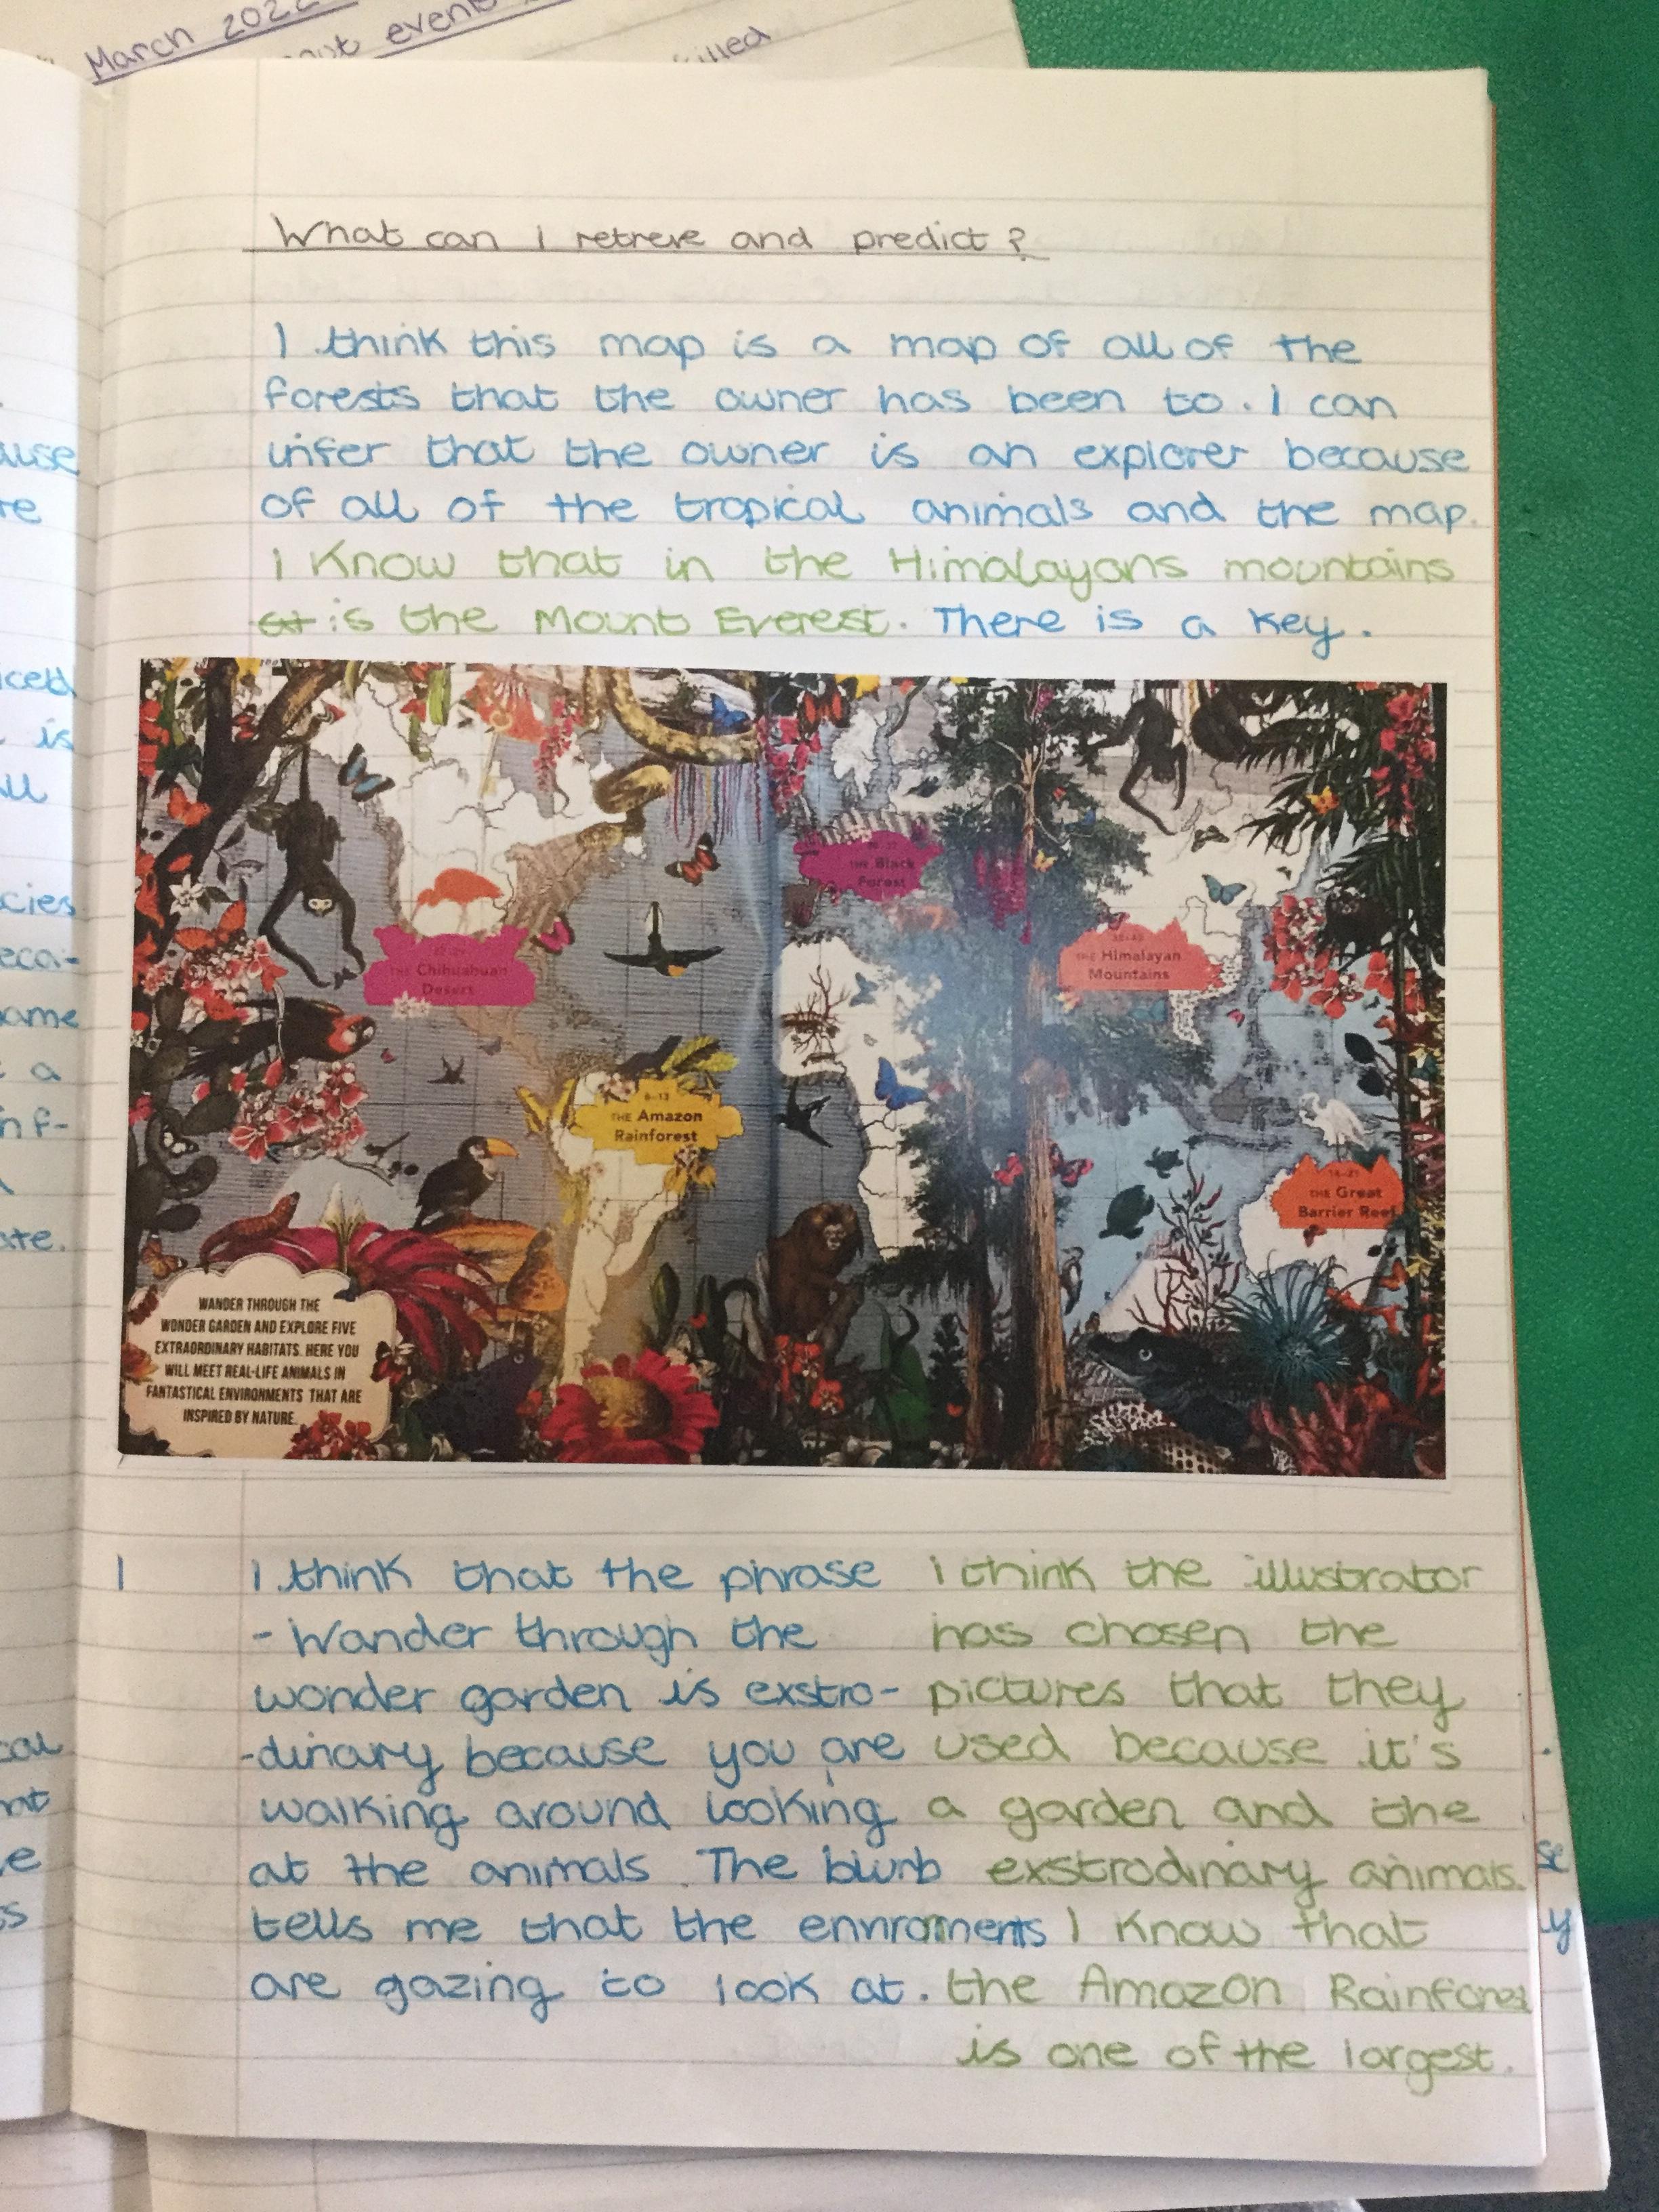 March 2022
not events
killed
What can I retreve and predict?
I think this map is a map of all of the
forests that the owner has been to. I can
infer that the owner is an explorer because
of all of the tropical animals and the map.
I know that in the Himalayans mountains
at is the Mount Everest. There is a key.
THE Chihuahuan
Desert
THE Black
Forest
THE Himalayan
Mountains
6-13
THE Amazon
Rainforest
14-21
THE Great
Barrier Reef
WANDER THROUGH THE
WONDER GARDEN AND EXPLORE FIVE
EXTRAORDINARY HABITATS. HERE YOU
WILL MEET REAL-LIFE ANIMALS IN
FANTASTICAL ENVIRONMENTS THAT ARE
INSPIRED BY NATURE.
I
I think that the phrase
- Wander through the
wonder garden is exstro-
-dinary because you are
walking around looking
at the animals. The blurb
tells me that the envroments
are gazing to look at.
i think the illustrator
has chosen the
pictures that they
used because it's
a garden and the
exstrodinary animals.
I know that
the Amazon Rainforest
is one of the largest.
ause
re
iced
is
all
cies
eca-
name
a
n f-
ate.
cal
hat
se
y